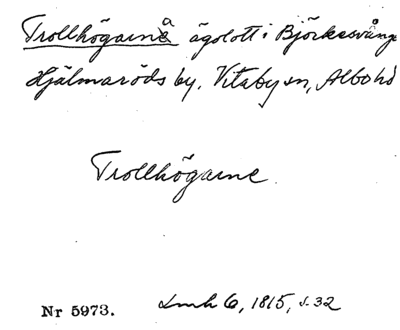 Trollhögarnå ägolott i Björkesvång
Hjälmaröds by, Vitaby sn, Albo hd
Trollhögarne
Nr 5973. Lmh 6, 1815, s. 32